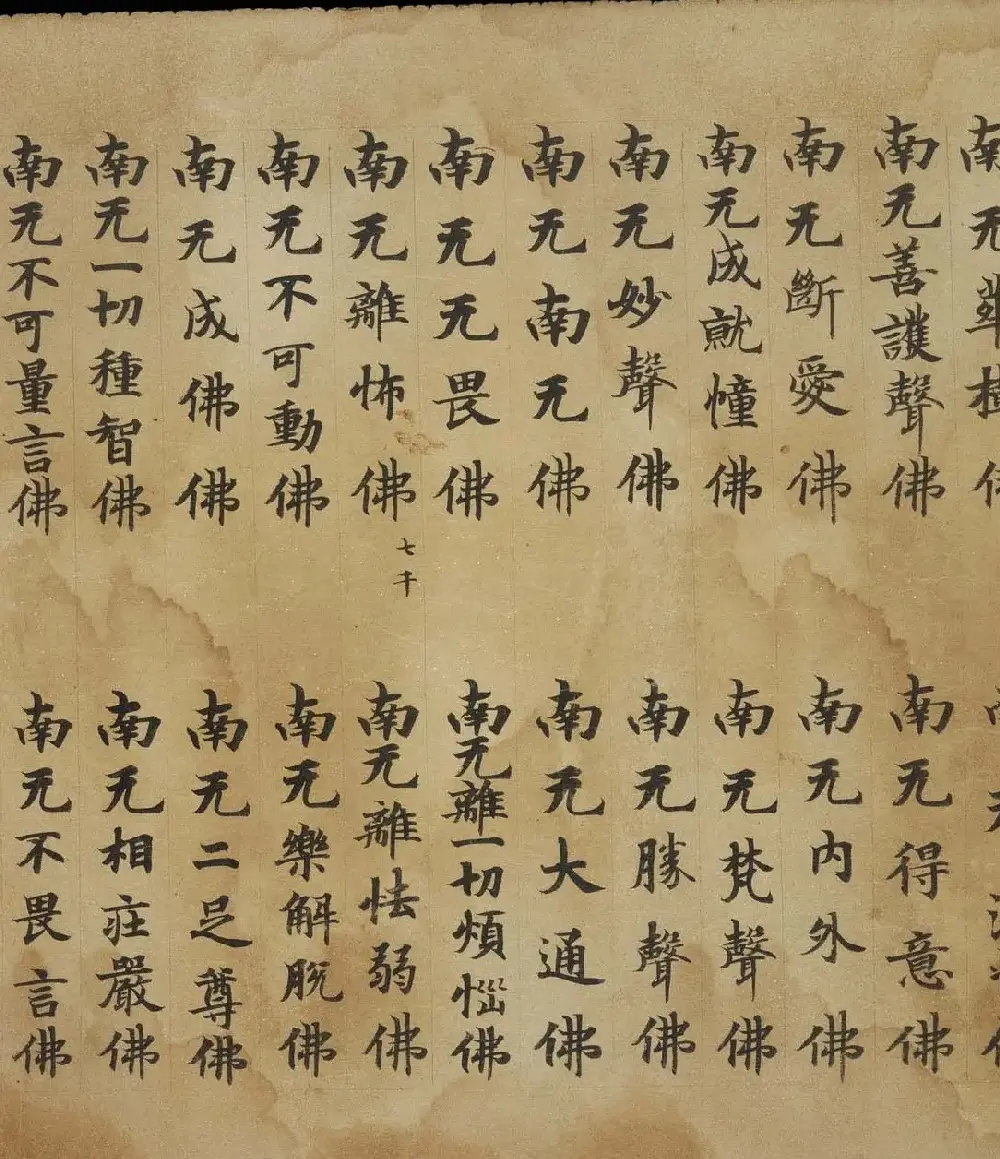 南无華樹佛
南无善護聲佛
南无得意佛
南无斷愛佛
南无内外佛
南无成就幢佛
南无梵聲佛
南无妙聲佛
南无勝聲佛
南无南无佛
南无大通佛
南无无畏佛
南无離一切煩惱佛
南无離怖佛
七千
南无離怯弱佛
南无不可動佛
南无樂解脱佛
南无成佛佛
南无二足尊佛
南无一切種智佛
南无相庄嚴佛
南无不可量言佛
南无不畏言佛